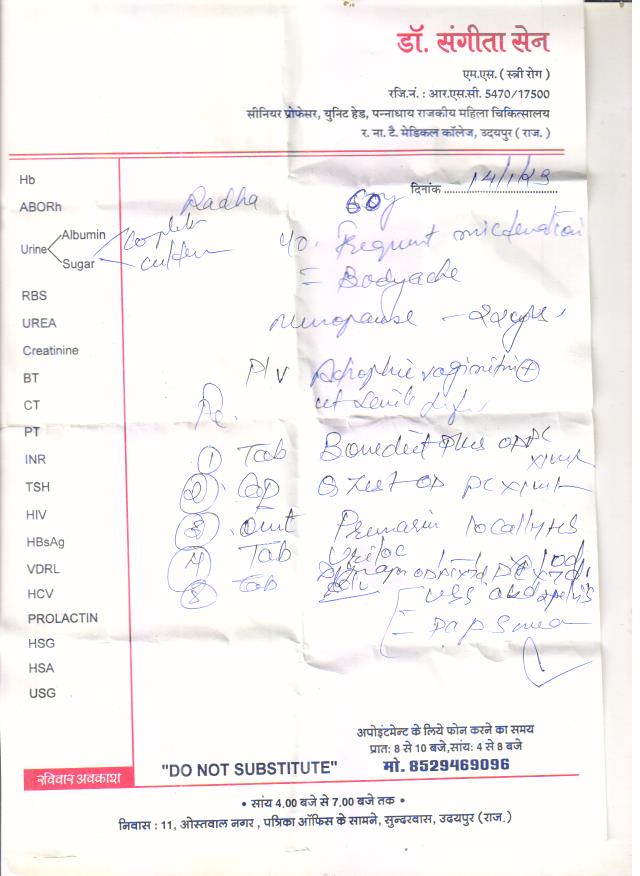 डॉ. संगीता सेन
एम.एस. ( स्त्री रोग )
रजि.नं. : आर.एस.सी. 5470/17500
सीनियर प्रोफेसर, युनिट हेड, पन्नाधाय राजकीय महिला चिकित्सालय
र. ना. टै. मेडिकल कॉलेज, उदयपुर ( राज. )
दिनांक 14/1/23
Hb
ABORh Radha 60y
Urine Albumin Complete
Sugar culture
Frequent micturation
= Bodyache
RBS
UREA menopause
Creatinine
BT P/V Atrophic vaginitis +
CT
PT
INR ① Tab Bonedeit Plus OD PC
TSH ②. Cap OD PC x 1 mth
HIV ③. Oint Premarin locally HS
HBsAg ④ Tab
VDRL
HCV ⑤ Tab
PROLACTIN = Pap Smear
HSG
HSA
USG
अपोइंटमेन्ट के लिये फोन करने का समय
प्रात: 8 से 10 बजे,सांय: 4 से 8 बजे
रविवार अवकाश "DO NOT SUBSTITUTE" मो. 8529469096
• सांय 4.00 बजे से 7.00 बजे तक •
निवास : 11, ओस्तवाल नगर , पत्रिका ऑफिस के सामने, सुन्दरवास, उदयपुर (राज.)